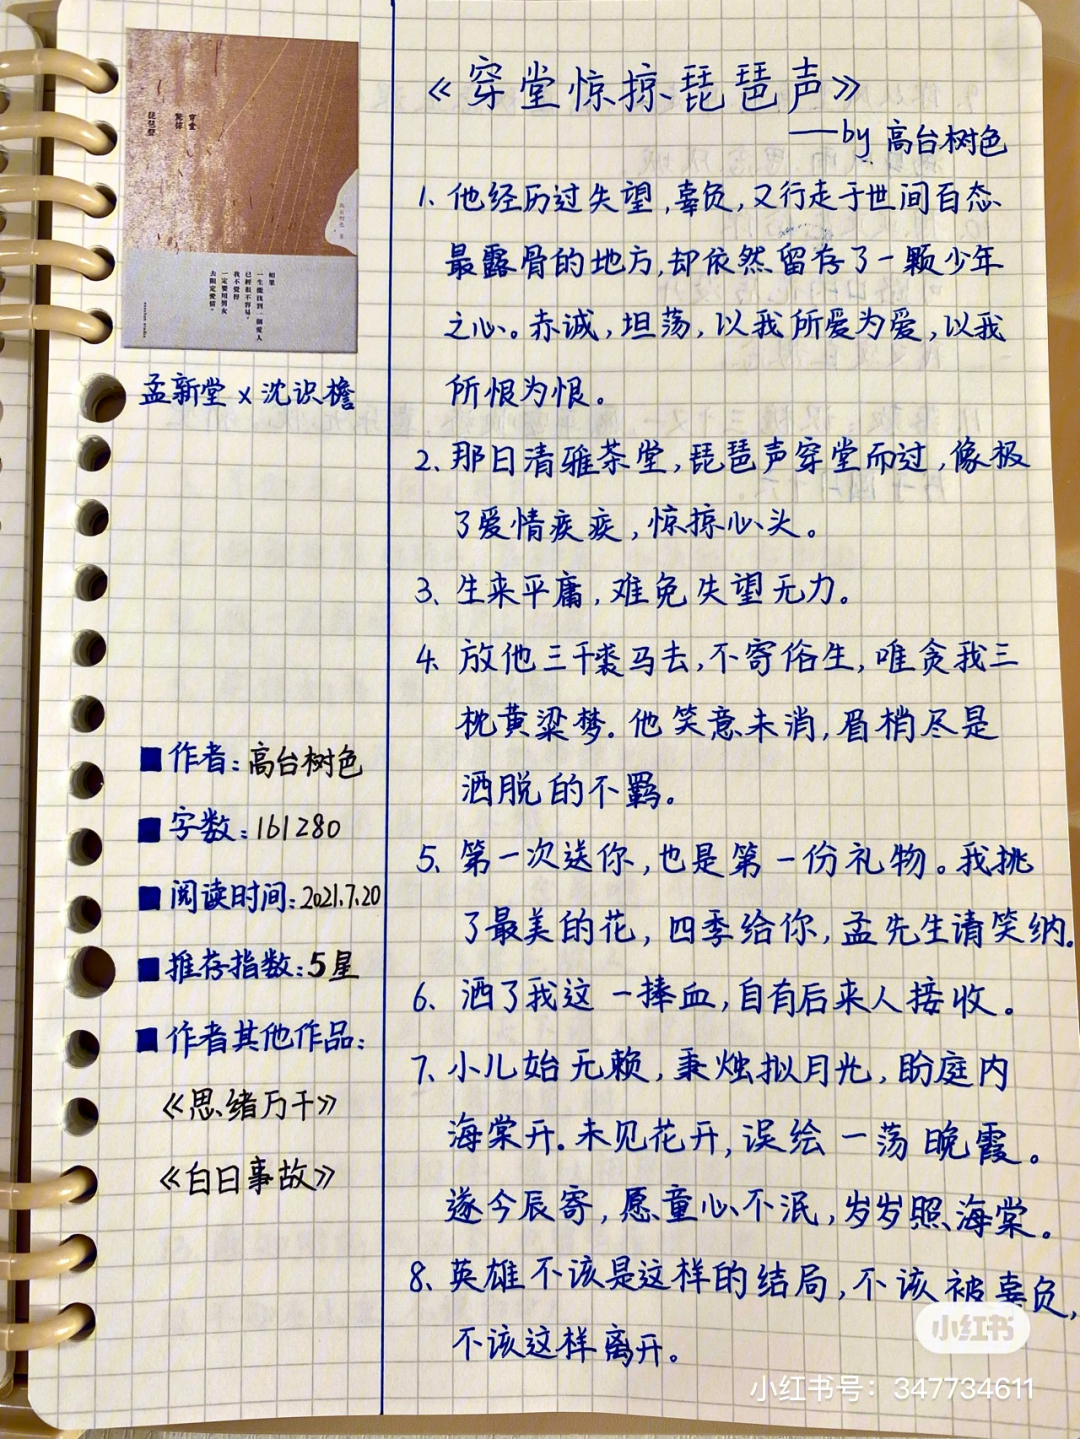 《穿堂惊掠琵琶声》
——by 高台树色
1. 他经历过失望,辜负,又行走于世间百态
最露骨的地方,却依然留存了一颗少年
之心。赤诚,坦荡,以我所爱为爱,以我
所恨为恨。
2、那日清雅茶堂,琵琶声穿堂而过,像极
了爱情疾疾,惊掠心头。
3、生来平庸,难免失望无力。
4、放他三千裘马去,不寄俗生,唯贪我三
枕黄粱梦.他笑意未消,眉梢尽是
洒脱的不羁。
5、第一次送你,也是第一份礼物。我挑
了最美的花,四季给你,孟先生请笑纳.
6、洒了我这一捧血,自有后来人接收。
7、小儿始无赖,秉烛拟月光,盼庭内
海棠开.未见花开,误绘一荡晚霞。
遂今辰寄,愿童心不泯,岁岁照海棠。
8、英雄不该是这样的结局,不该被辜负,
不该这样离开。
穿堂
惊掠
琵琶声
高台树色 著
如果
一生能找到一個愛人
已經很不容易,
我不覺得
一定要用男女
去限定愛情。
孟新堂 x 沈识檐
■作者:高台树色
■字数:161280
■阅读时间:2021.7.20
■推存指数:5星
■作者其他作品:
《思绪万千》
《白日事故》
小红书
小红书号:347734611